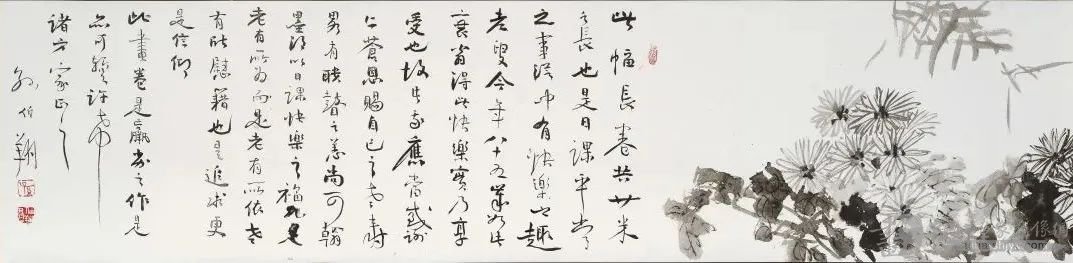 此幅長卷共廿米
之長也是日課平常
之事從中有快樂之趣
老叟今年八十五歲如此
衰翁得此快樂實乃享
受也故此我應當感謝
仁蒼恩賜自己之高壽
男有暌瞽之恙尚可翰
墨得以日課快樂之福凡是
老有所為而是老有所依老
有所慰籍也是追求更
是信仰
此畫卷是贏書之作是
亦可
諸方家正之
孫伯翔